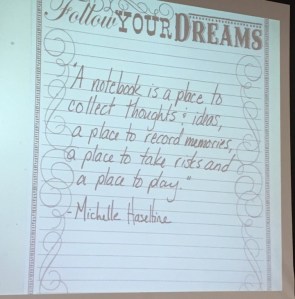 Follow YOUR DREAMS
"A notebook is a place to
collect thoughts & ideas,
a place to record memories,
a place to take risks and
a place to play."
- Michelle Haseltine